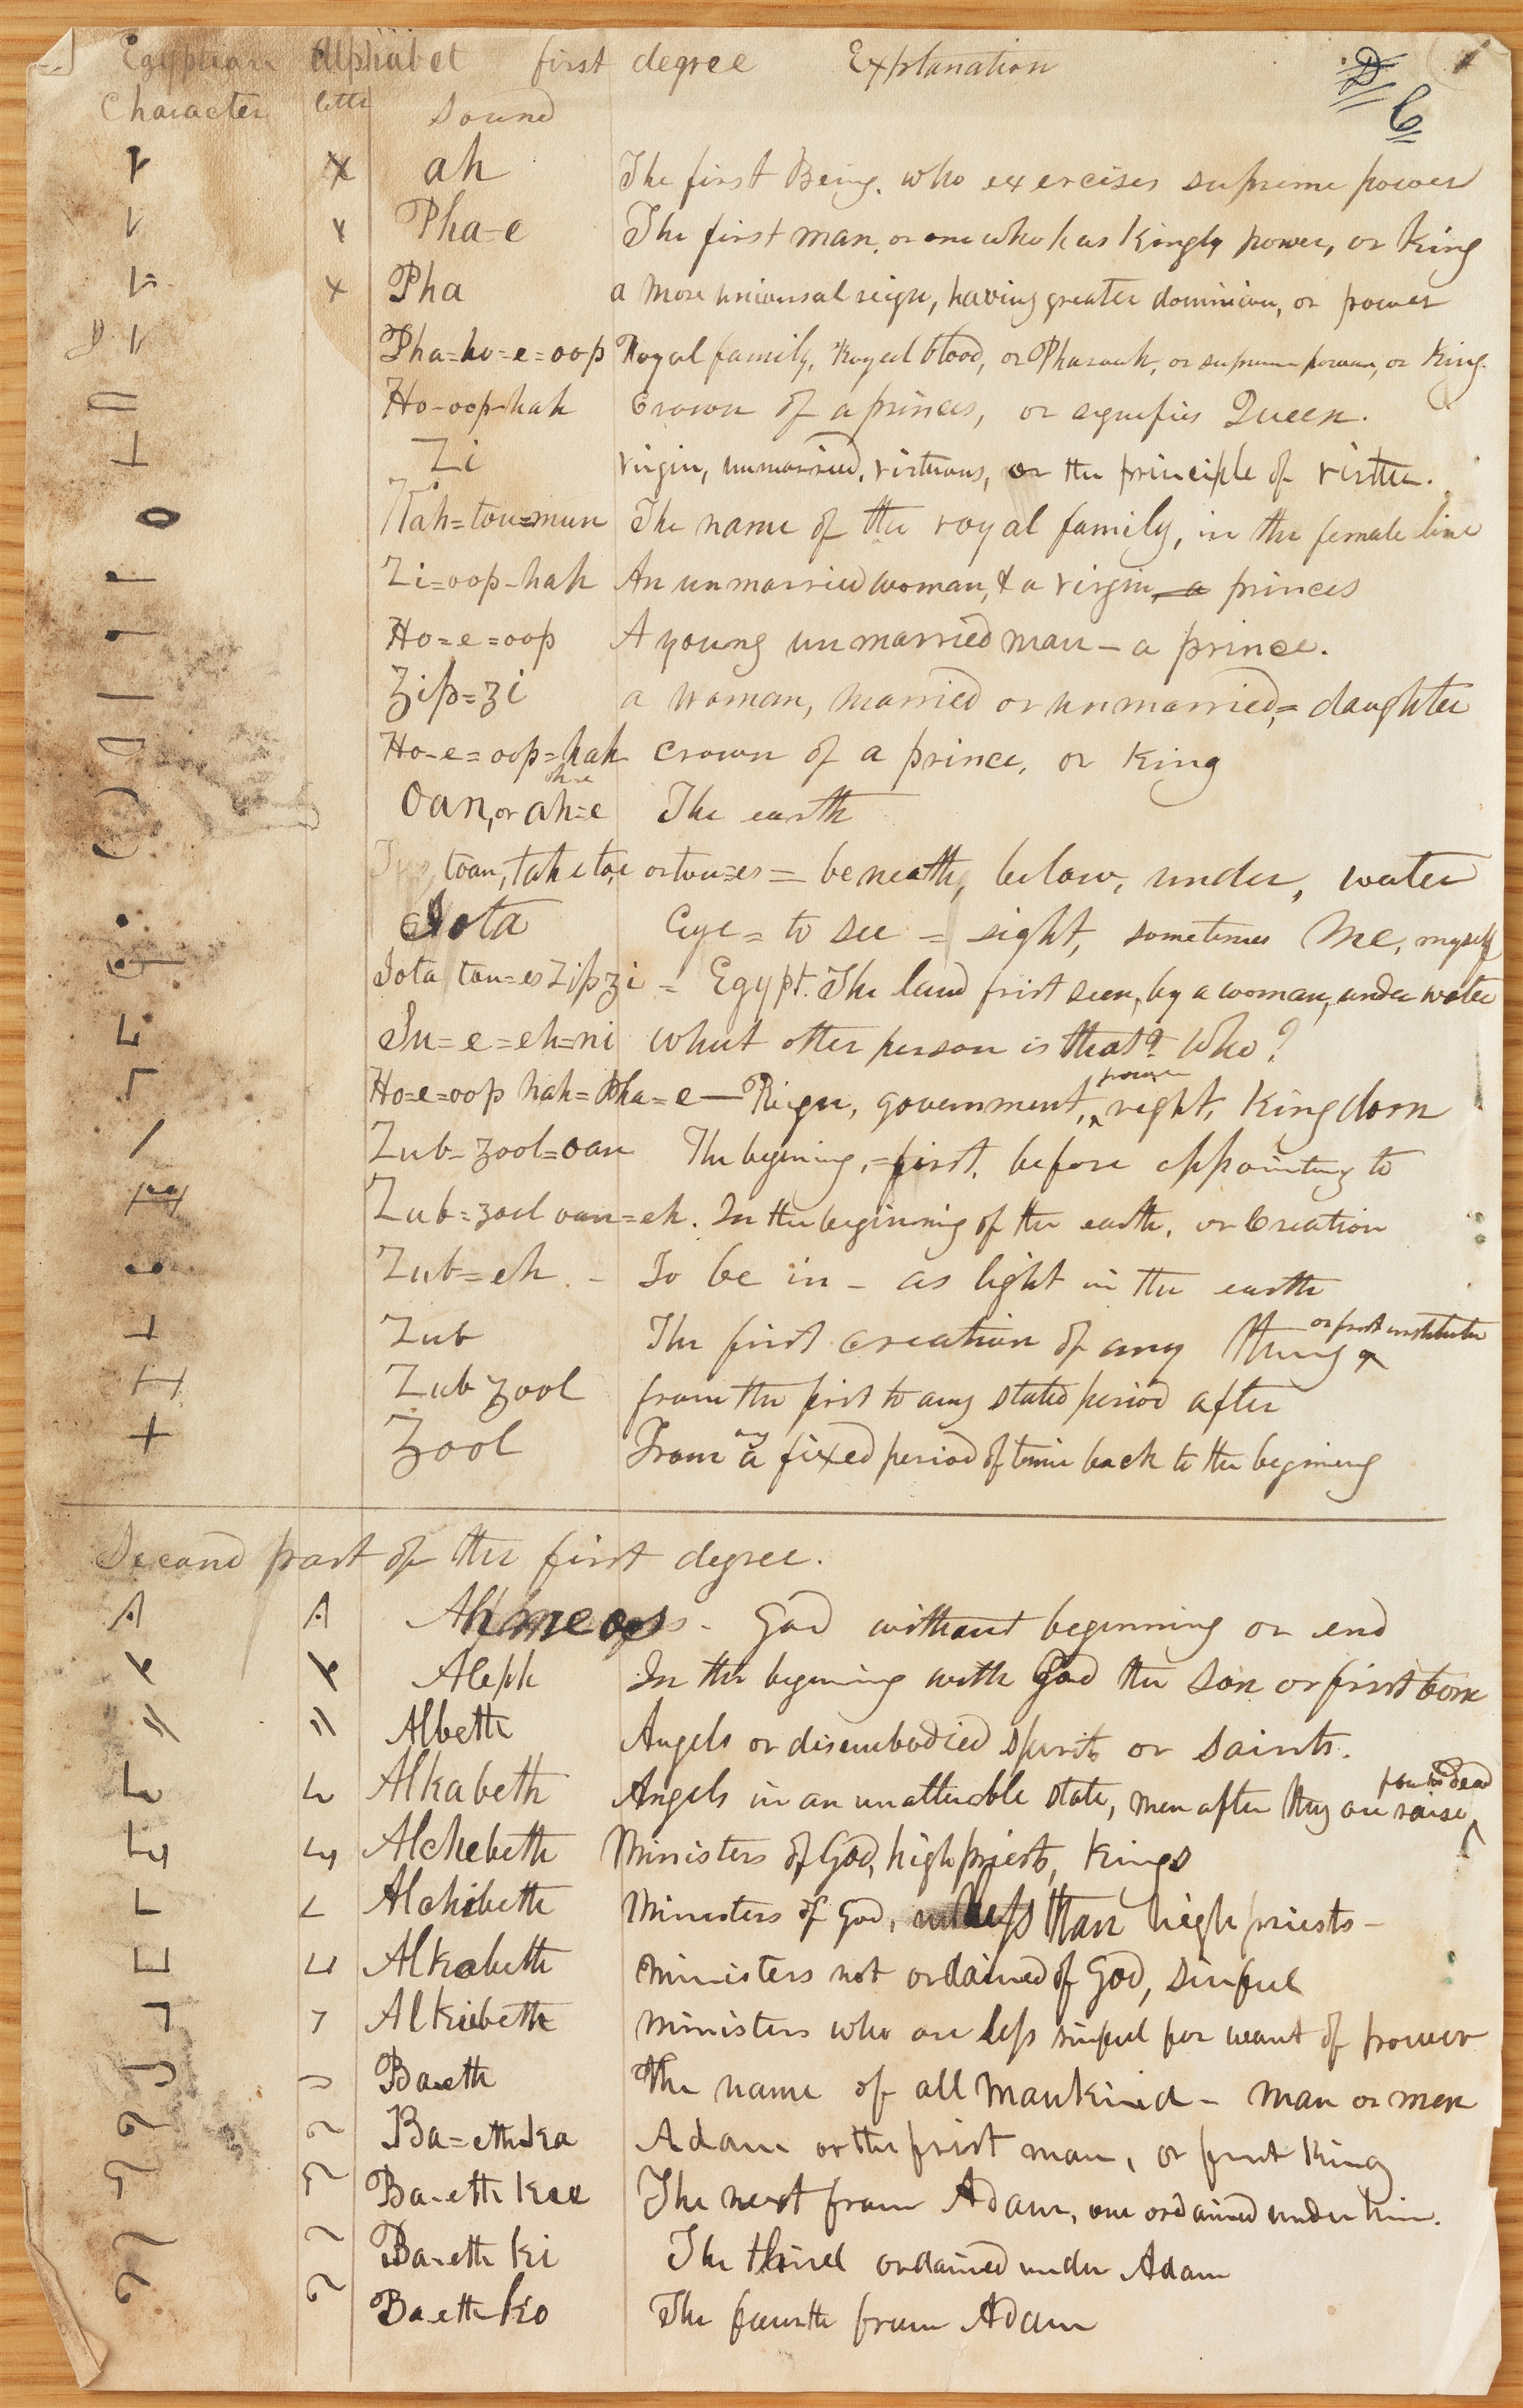 Egyptian Alphabet first degree Explanation
Character letter Sound
D C 1
ah The first Being. who exercises supreme power
Pha=e The first man, or one who has Kingly power, or King
Pha a more universal reign, having greater dominion, or power
Pha=ho=e=oop Royal family, Royal blood, or Pharaoh, or supreme power, or King.
Ho-oop-hah Crown of a princes, or signifies Queen.
Zi virgin, unmarried, virtuous, or the principle of virtue.
Kah=tou=mun The name of the royal family, in the female line
Zi=oop-hah An unmarried woman, & a virgin, a princes
Ho=e=oop A young unmarried man – a prince.
Zip=zi a woman, married or unmarried, = daughter
Ho-e=oop=hah crown of a prince, or King
oh=e
Oan, or ah=e The earth
toan, tah e to,e or tou=es = beneath, below, under, water
Iota Eye = to see = sight, sometimes Me, myself
Iota tou=es Zip zi = Egypt. The land frist seen, by a woman, under water
Su=e=eh=ni what other person is that? Who?
power
Ho=e=oop hah=Pha=e — Reign, government, ^ right, Kingdom
Zub-zool=oan The begining, = first, before appointing to
Zub=zool oan=eh. In the beginning of the earth, or Creation
Zub=eh – To be in – as light in the earth
or frist institution
Zub The first creation of any thing ^
Zub zool from the frist to any stated period after
any
Zool From a fixed period of time back to the begining
Second part of the first degree.
Ahmeos – God without beginning or end
Aleph In the begining with God the Son or first born
Albeth Angels or disembodied spirits or saints.
from the dead
Alkabeth Angels in an unalterable state, men after they are raise ^
Alchebeth Ministers of God, high priests, Kings
Alchibeth Ministers of God, less than high priests –
Alkabeth Ministers not ordained of God, sinful
Alkiebeth ministers who are less sinful for want of power
Baeth The name of all Mankind – man or men
Ba=eth Ka Adam or the frist man, or frist King
Ba-eth kee The next from Adam, one ordained under him.
Ba-eth ki The third ordained under Adam
Ba-eth ko The fourth from Adam